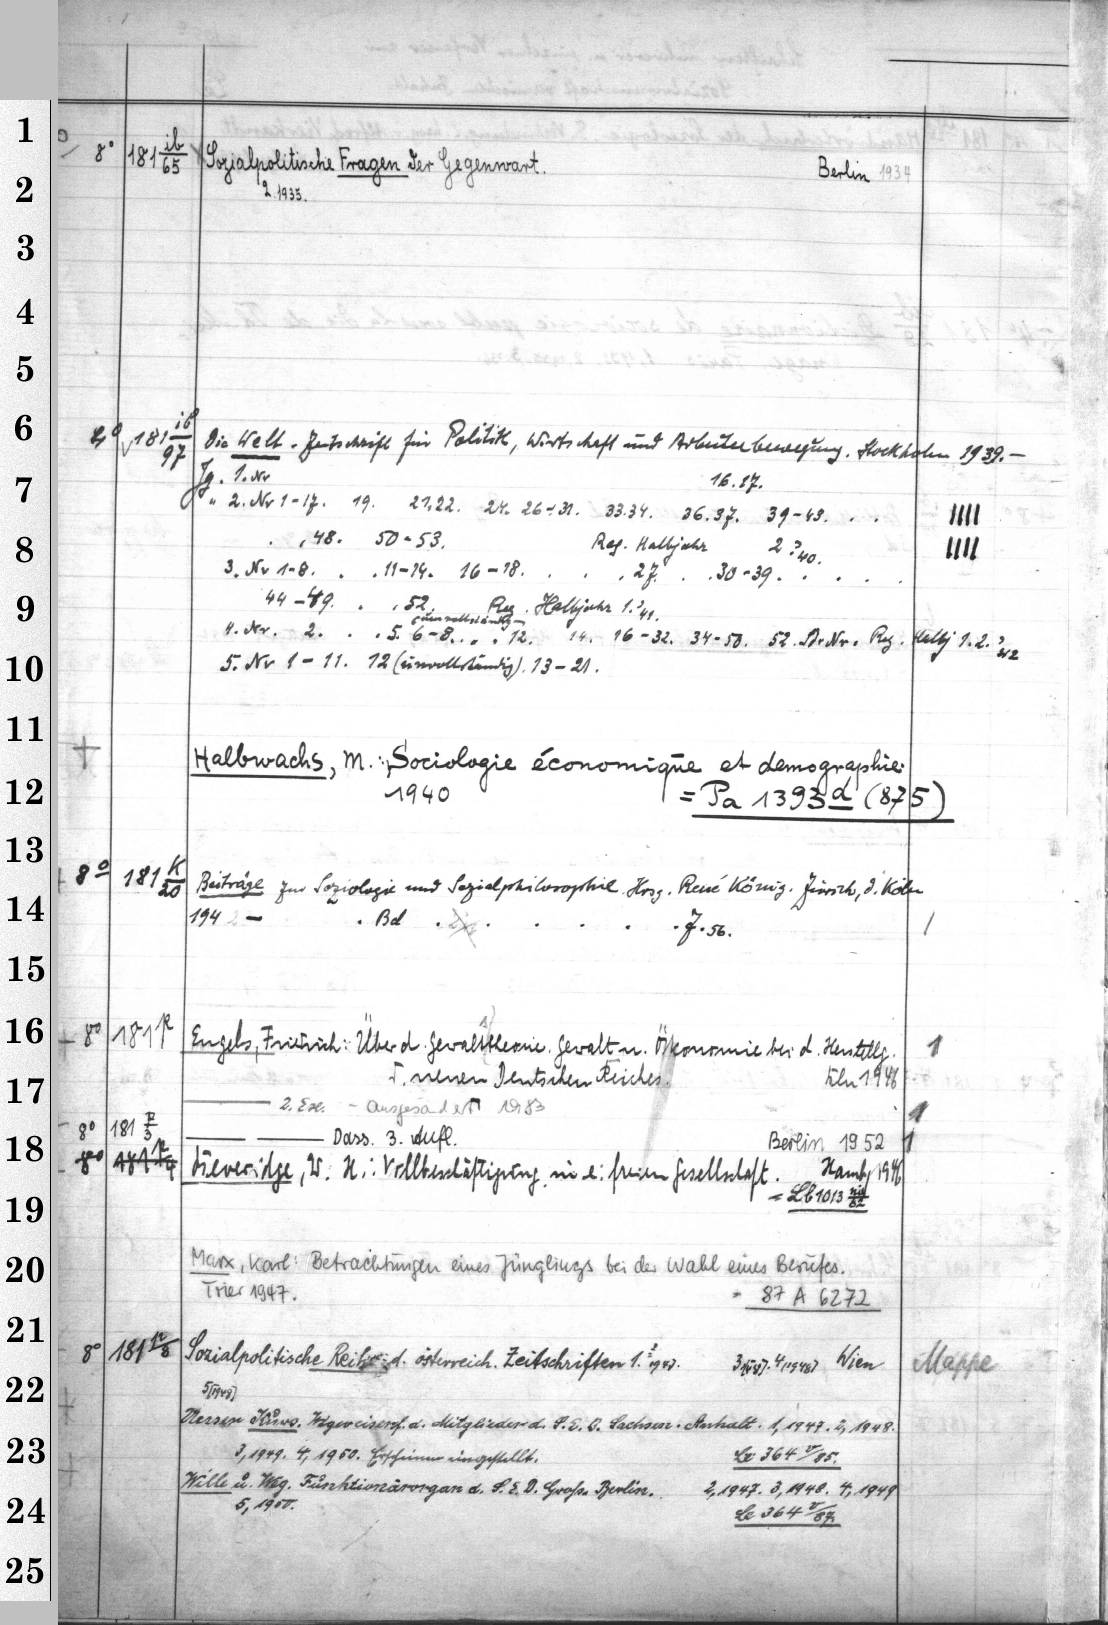 1
8° 181 ib/65 Sozialpolitische Fragen der Gegenwart. Berlin 1934
2
2. 1935.
3
4
5
6
4° 181 ib/97 Die Welt. Zeitschrift für Politik, Wirtschaft und Arbeiterbewegung. Stockholm 1939.—
Jg. 1. Nr 16.17.
7
" 2. Nr 1-17. 19. 21.22. 24. 26-31. 33.34. 36.37. 39-43. . .
8
. , 48. 50-53. Reg. Halbjahr 2 40.
3. Nr 1-8. . . 11-14. 16-18. . . . 27. . . 30-39. . . . .
9
44-49. . . 52. Reg. Halbjahr 1. 41.
(unvollständig)
4. Nr. 2. . . 5. 6-8. . . 12. 14. 16-32. 34-50. 52. Reg. Halbj 1.2. 42
10
5. Nr 1-11. 12 (unvollständig). 13-21.
11
12
Halbwachs, M.: Sociologie économique et demographie.
1940 = Pa 1393 d (875)
13
8° 181 K/20 Beiträge zur Soziologie und Sozialphilosophie. Hrsg. René König. Zürich, Köln
14
194 — . Bd . . . . . . J. 56.
15
16
8° 181 k Engels, Friedrich: Über d. Gewalttheorie. Gewalt u. Ökonomie bei d. Herstllg. 1
17
d. neuen Deutschen Reiches. Bln 1946
2. Ex. - ausgesondert 1983 1
18
8° 181 k/3 Dass. 3. Aufl. Berlin 1952 1
8° 181 k/4 Beveridge, W. H.: Vollbeschäftigung in e. freien Gesellschaft. Hambg 1946
19
= Lb 1013
20
Marx, Karl: Betrachtungen eines Jünglings bei der Wahl eines Berufes.
Trier 1947. = 87 A 6272
21
8° 181 k/8 Sozialpolitische Reihe d. österreich. Zeitschriften 1. 1947. 3 4 (1948) Wien Mappe
22
5 [1948]
Kurs. Wegweiser f. d. Mitglieder d. S.E.D. Sachsen-Anhalt. 1, 1947. 2, 1948.
23
3, 1949. 4, 1950. Erscheinen eingestellt. Le 364 v/85.
Wille u. Weg. Funktionärorgan d. S.E.D. Gross Berlin. 2, 1947. 3, 1948. 4, 1949
24
5, 1950. Le 364 v/87.
25